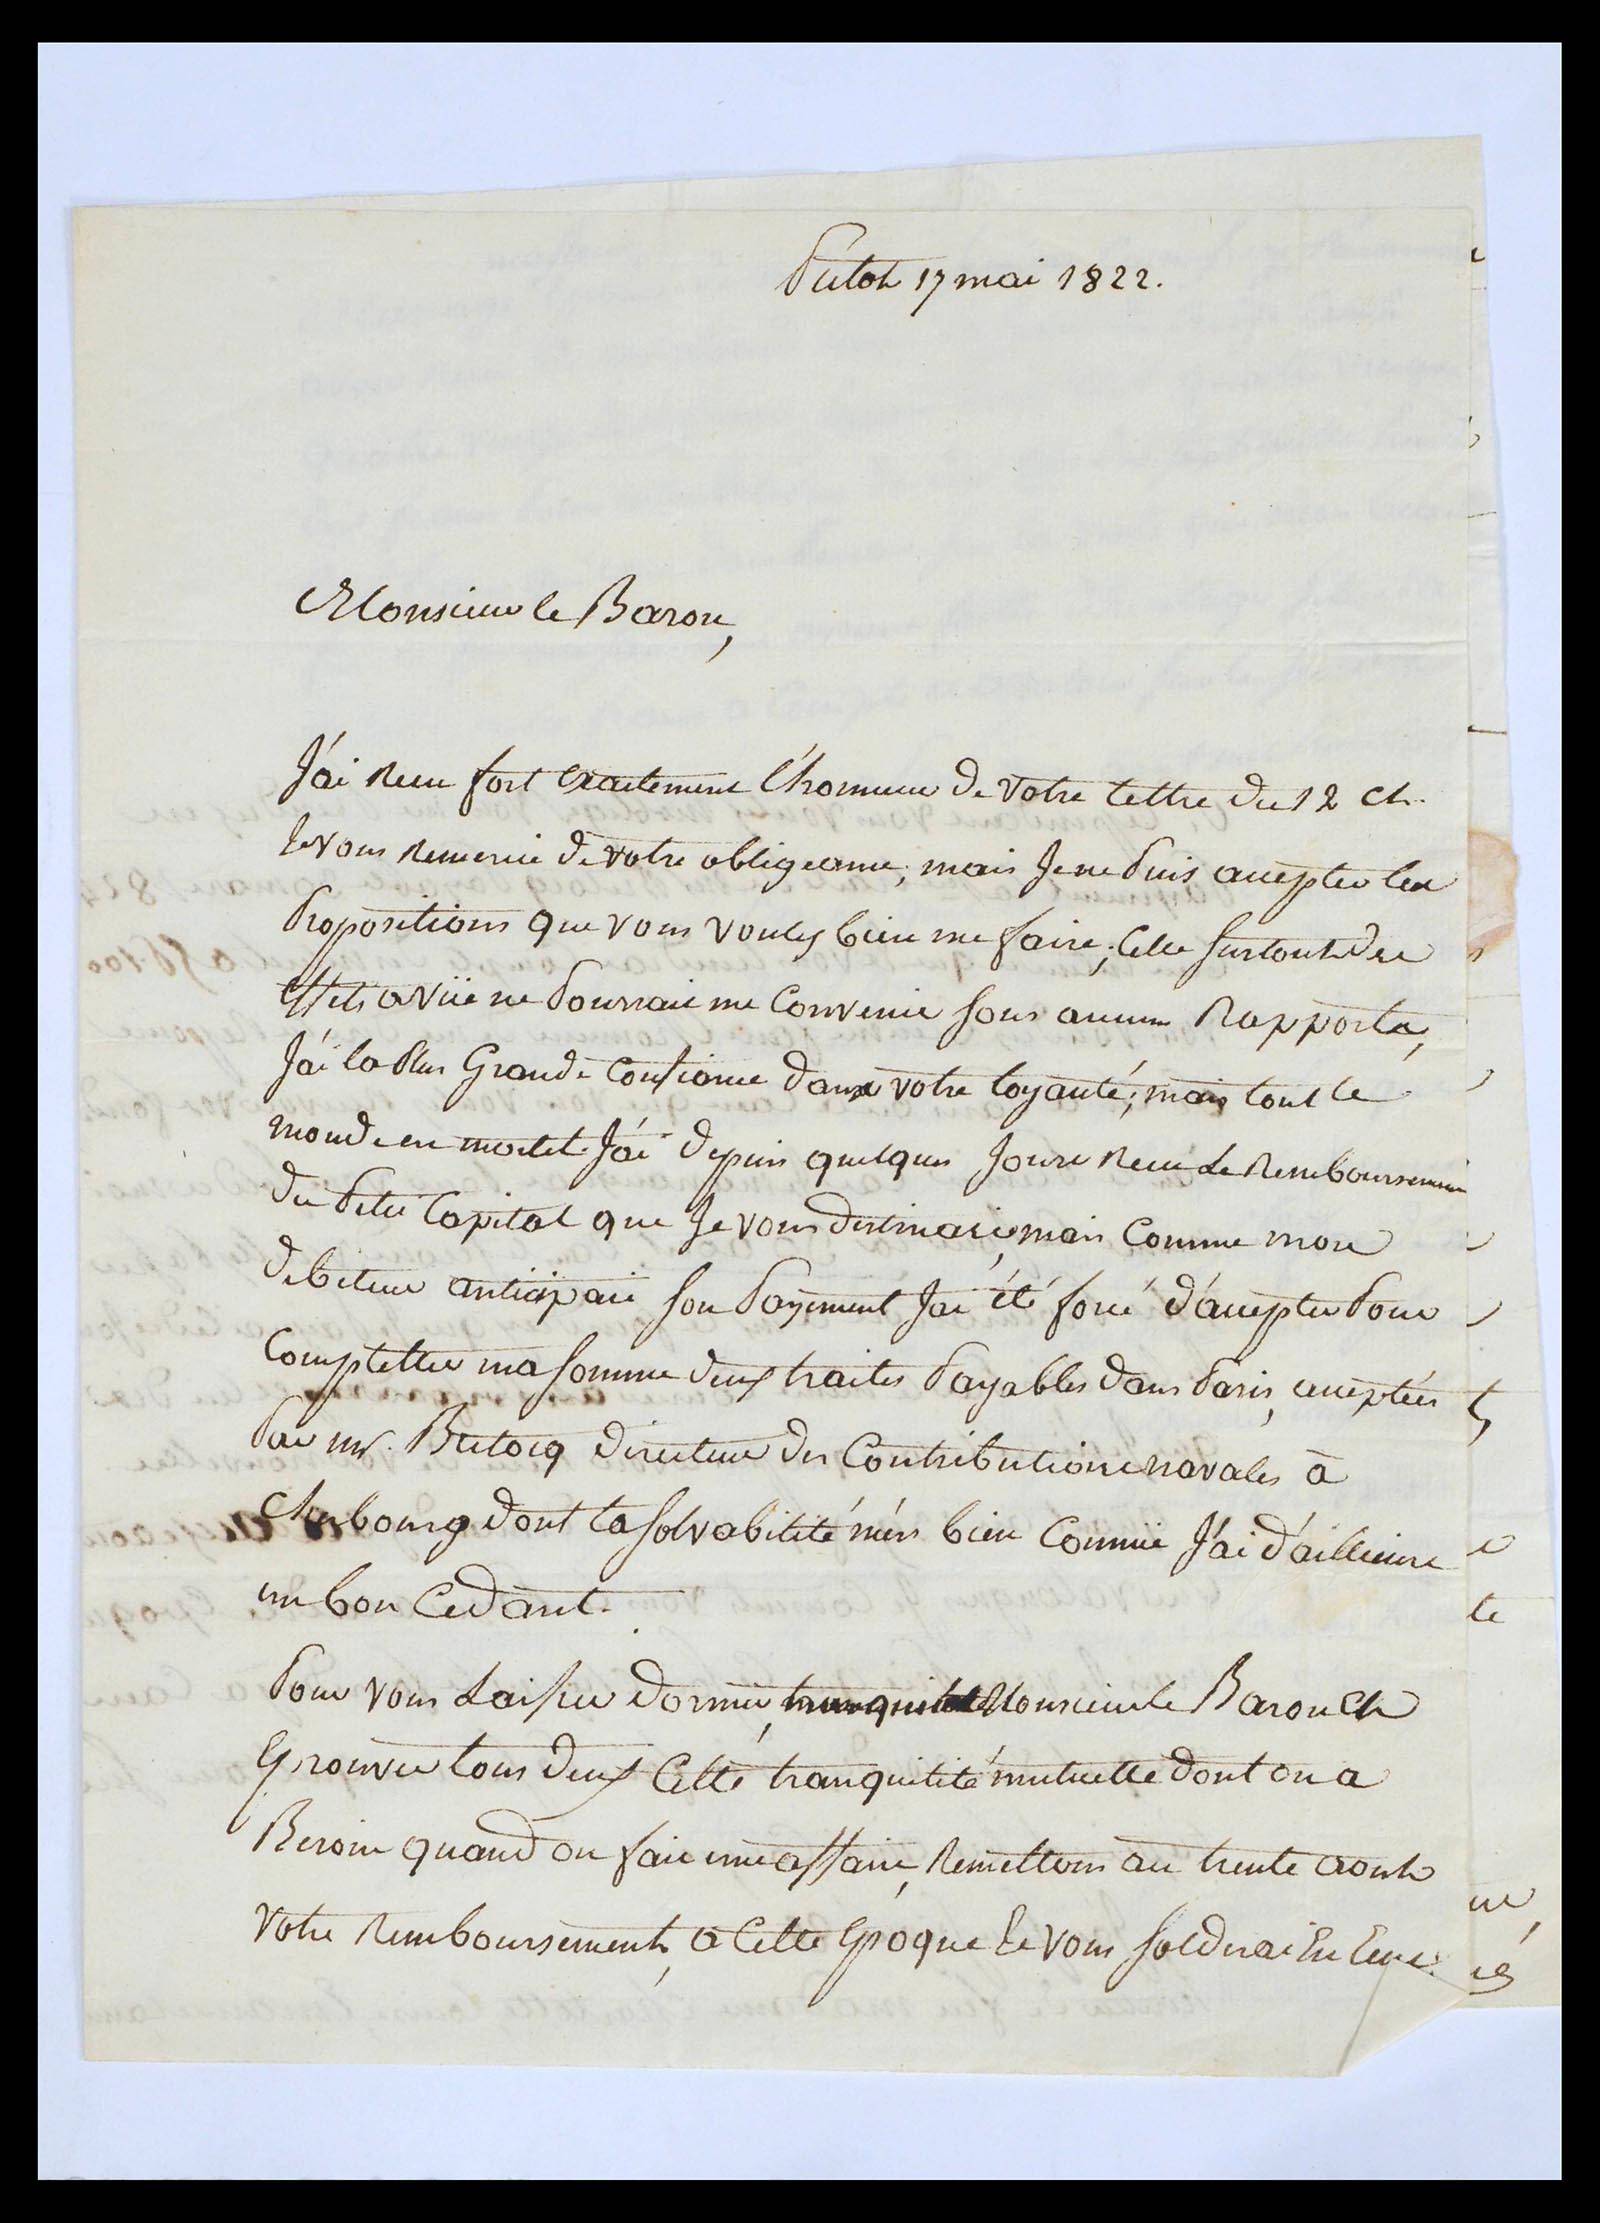 Putot 17 mai 1822.
Monsieur le Baron,
J'ai recu fort exactement l'honneur de votre lettre du 12 ct.
Je vous remercie de votre obligeance, mais Je ne puis accepter les
propositions que vous voulez bien me faire; celle surtout des
effets a vüe ne pourrait me convenir sous aucuns Rapports,
J'ai la plus Grande Confiance dans votre loyauté, mais tout le
monde est mortel. J'ai depuis quelques Jours recu Le Remboursement
du petit Capital que Je vous destinais, mais Comme mon
debiteur anticipait son payement J'ai été forcé d'accepter pour
Completter ma somme deux traites payables dans Paris, acceptées
par mr. Bretocq directeur des Contributions navales à
cherbourg dont la solvabilité m'est bien Connüe J'ai d'ailleurs
un bon Cedant.
Pour vous Laisser dormir tranquille Monsieur le Baron et
Eprouver tous deux Cette tranquilité mutuelle dont on a
Besoin quand on fait une affaire, Remettons au trente aout
votre Remboursement, a Cette Epoque Je vous solderai En Ecus
te